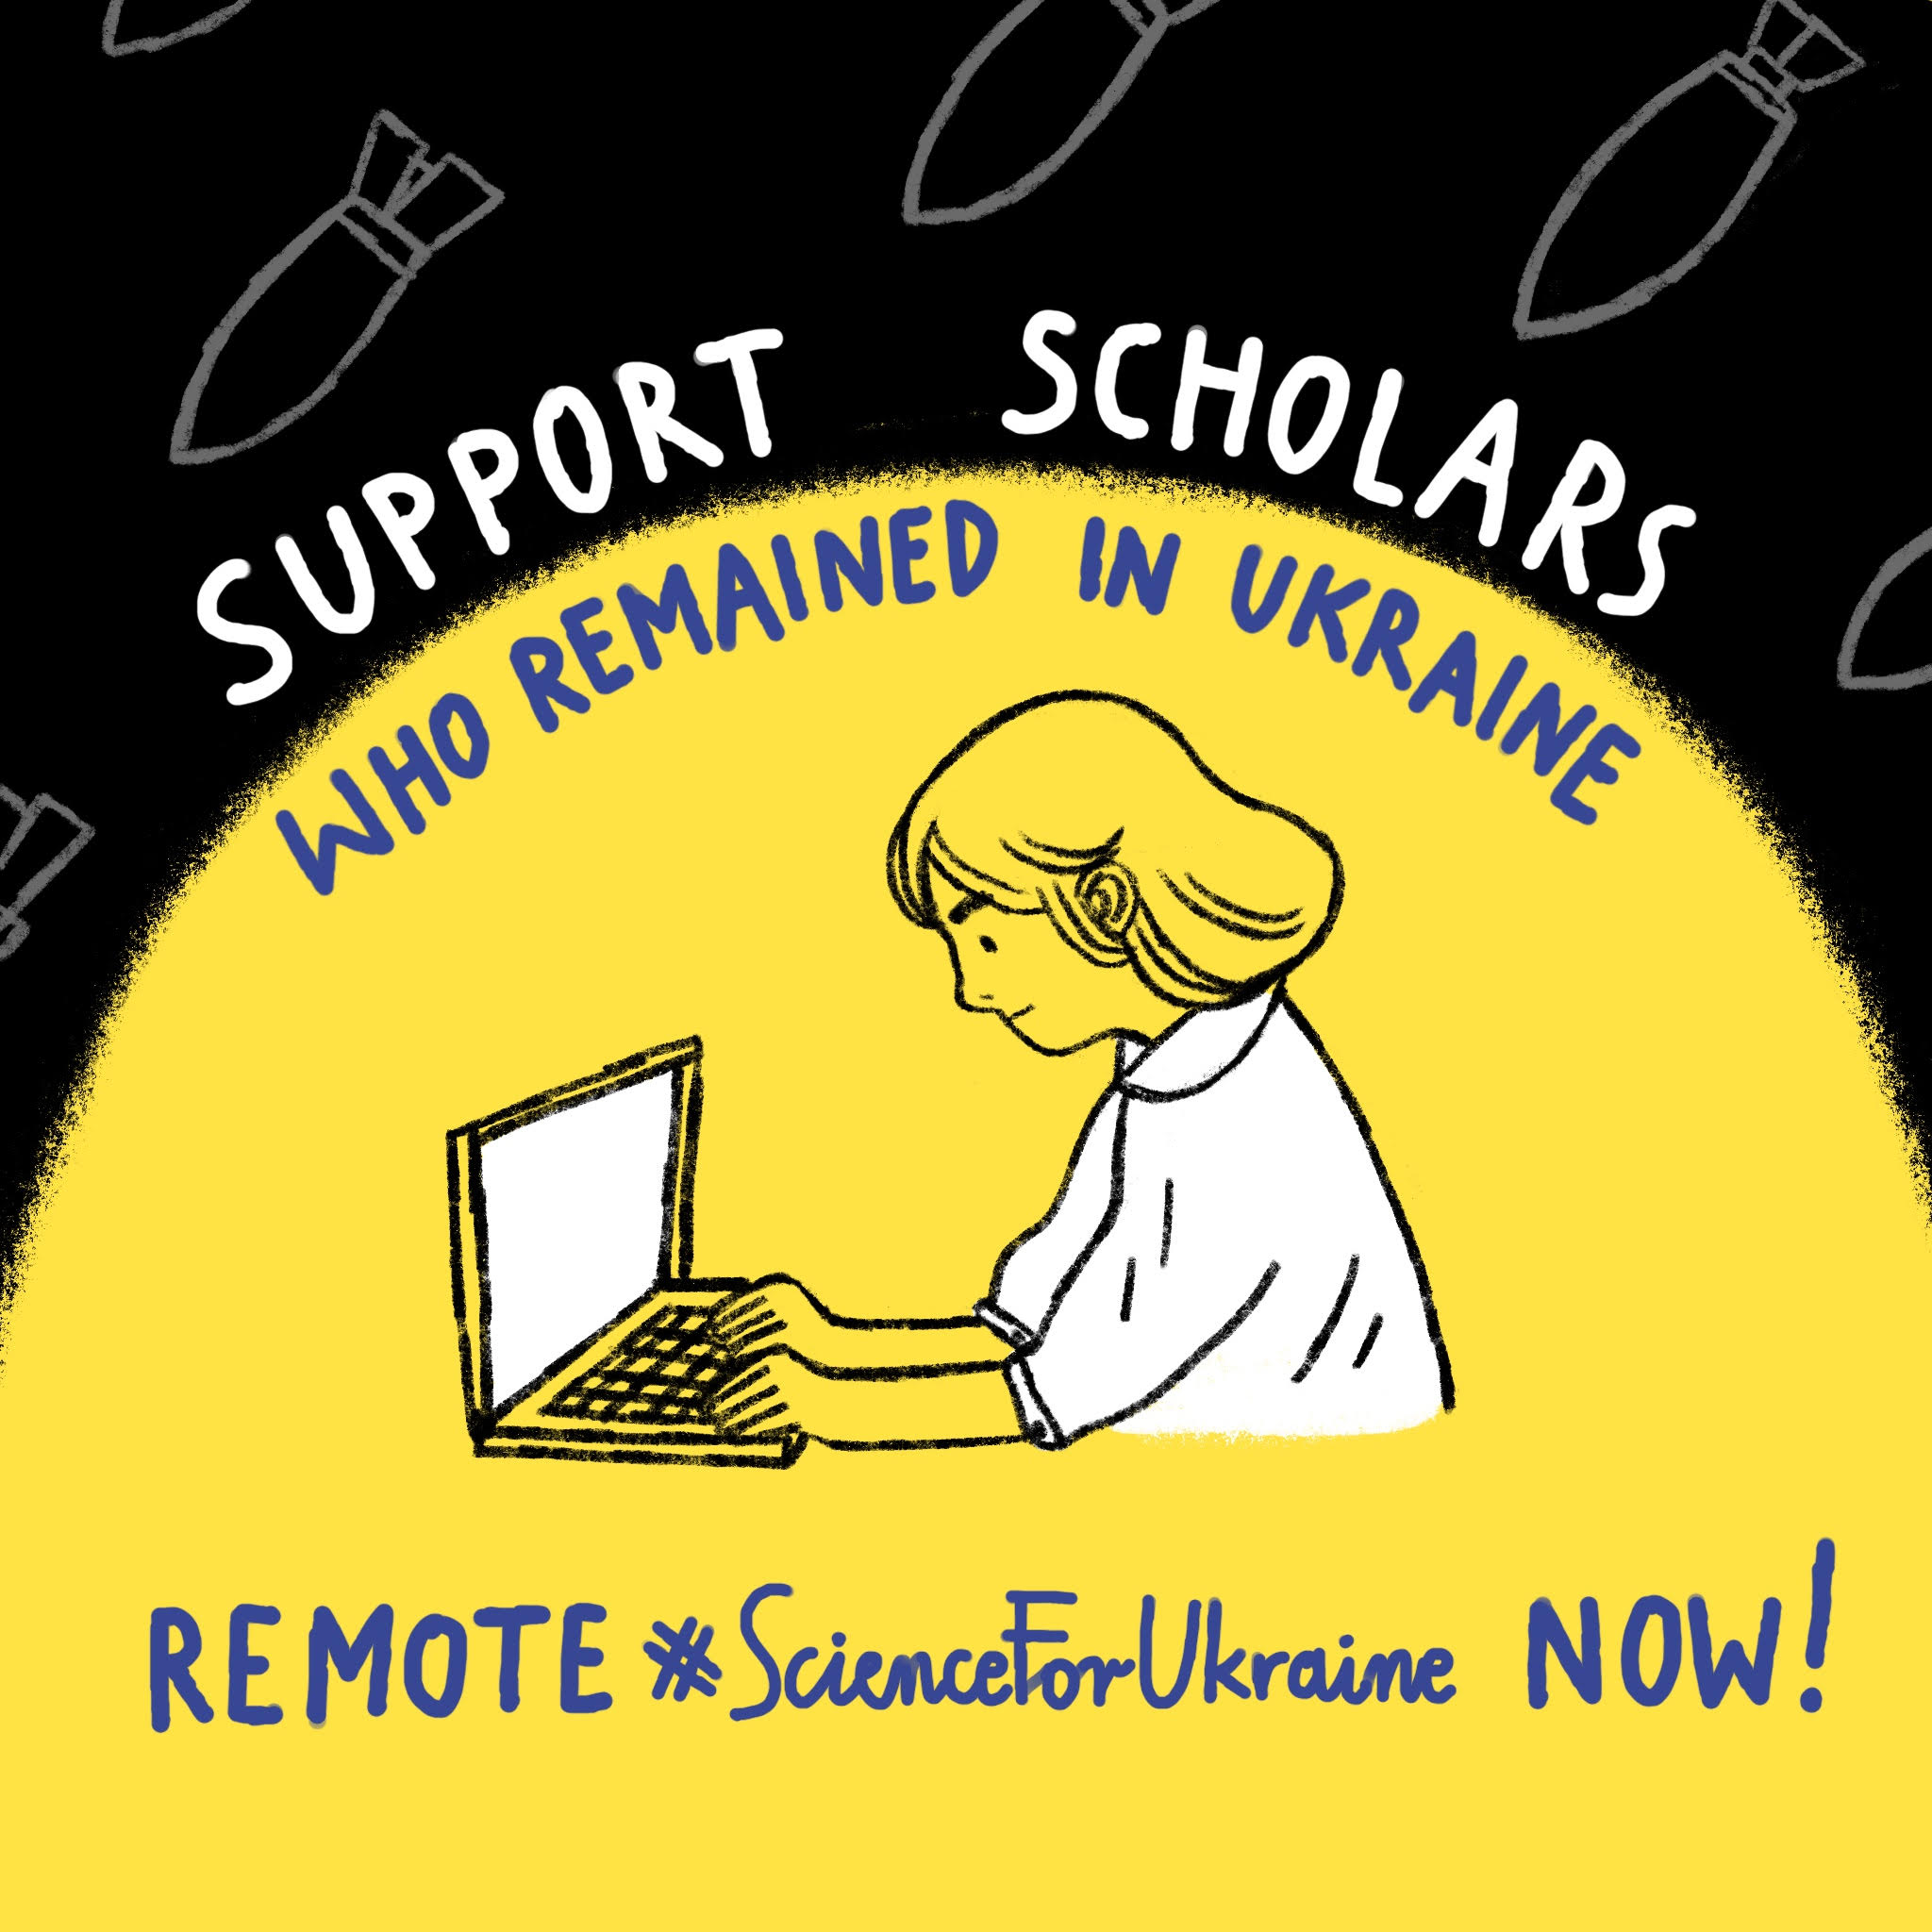 SUPPORT SCHOLARS
WHO REMAINED IN UKRAINE
REMOTE #ScienceForUkraine NOW!